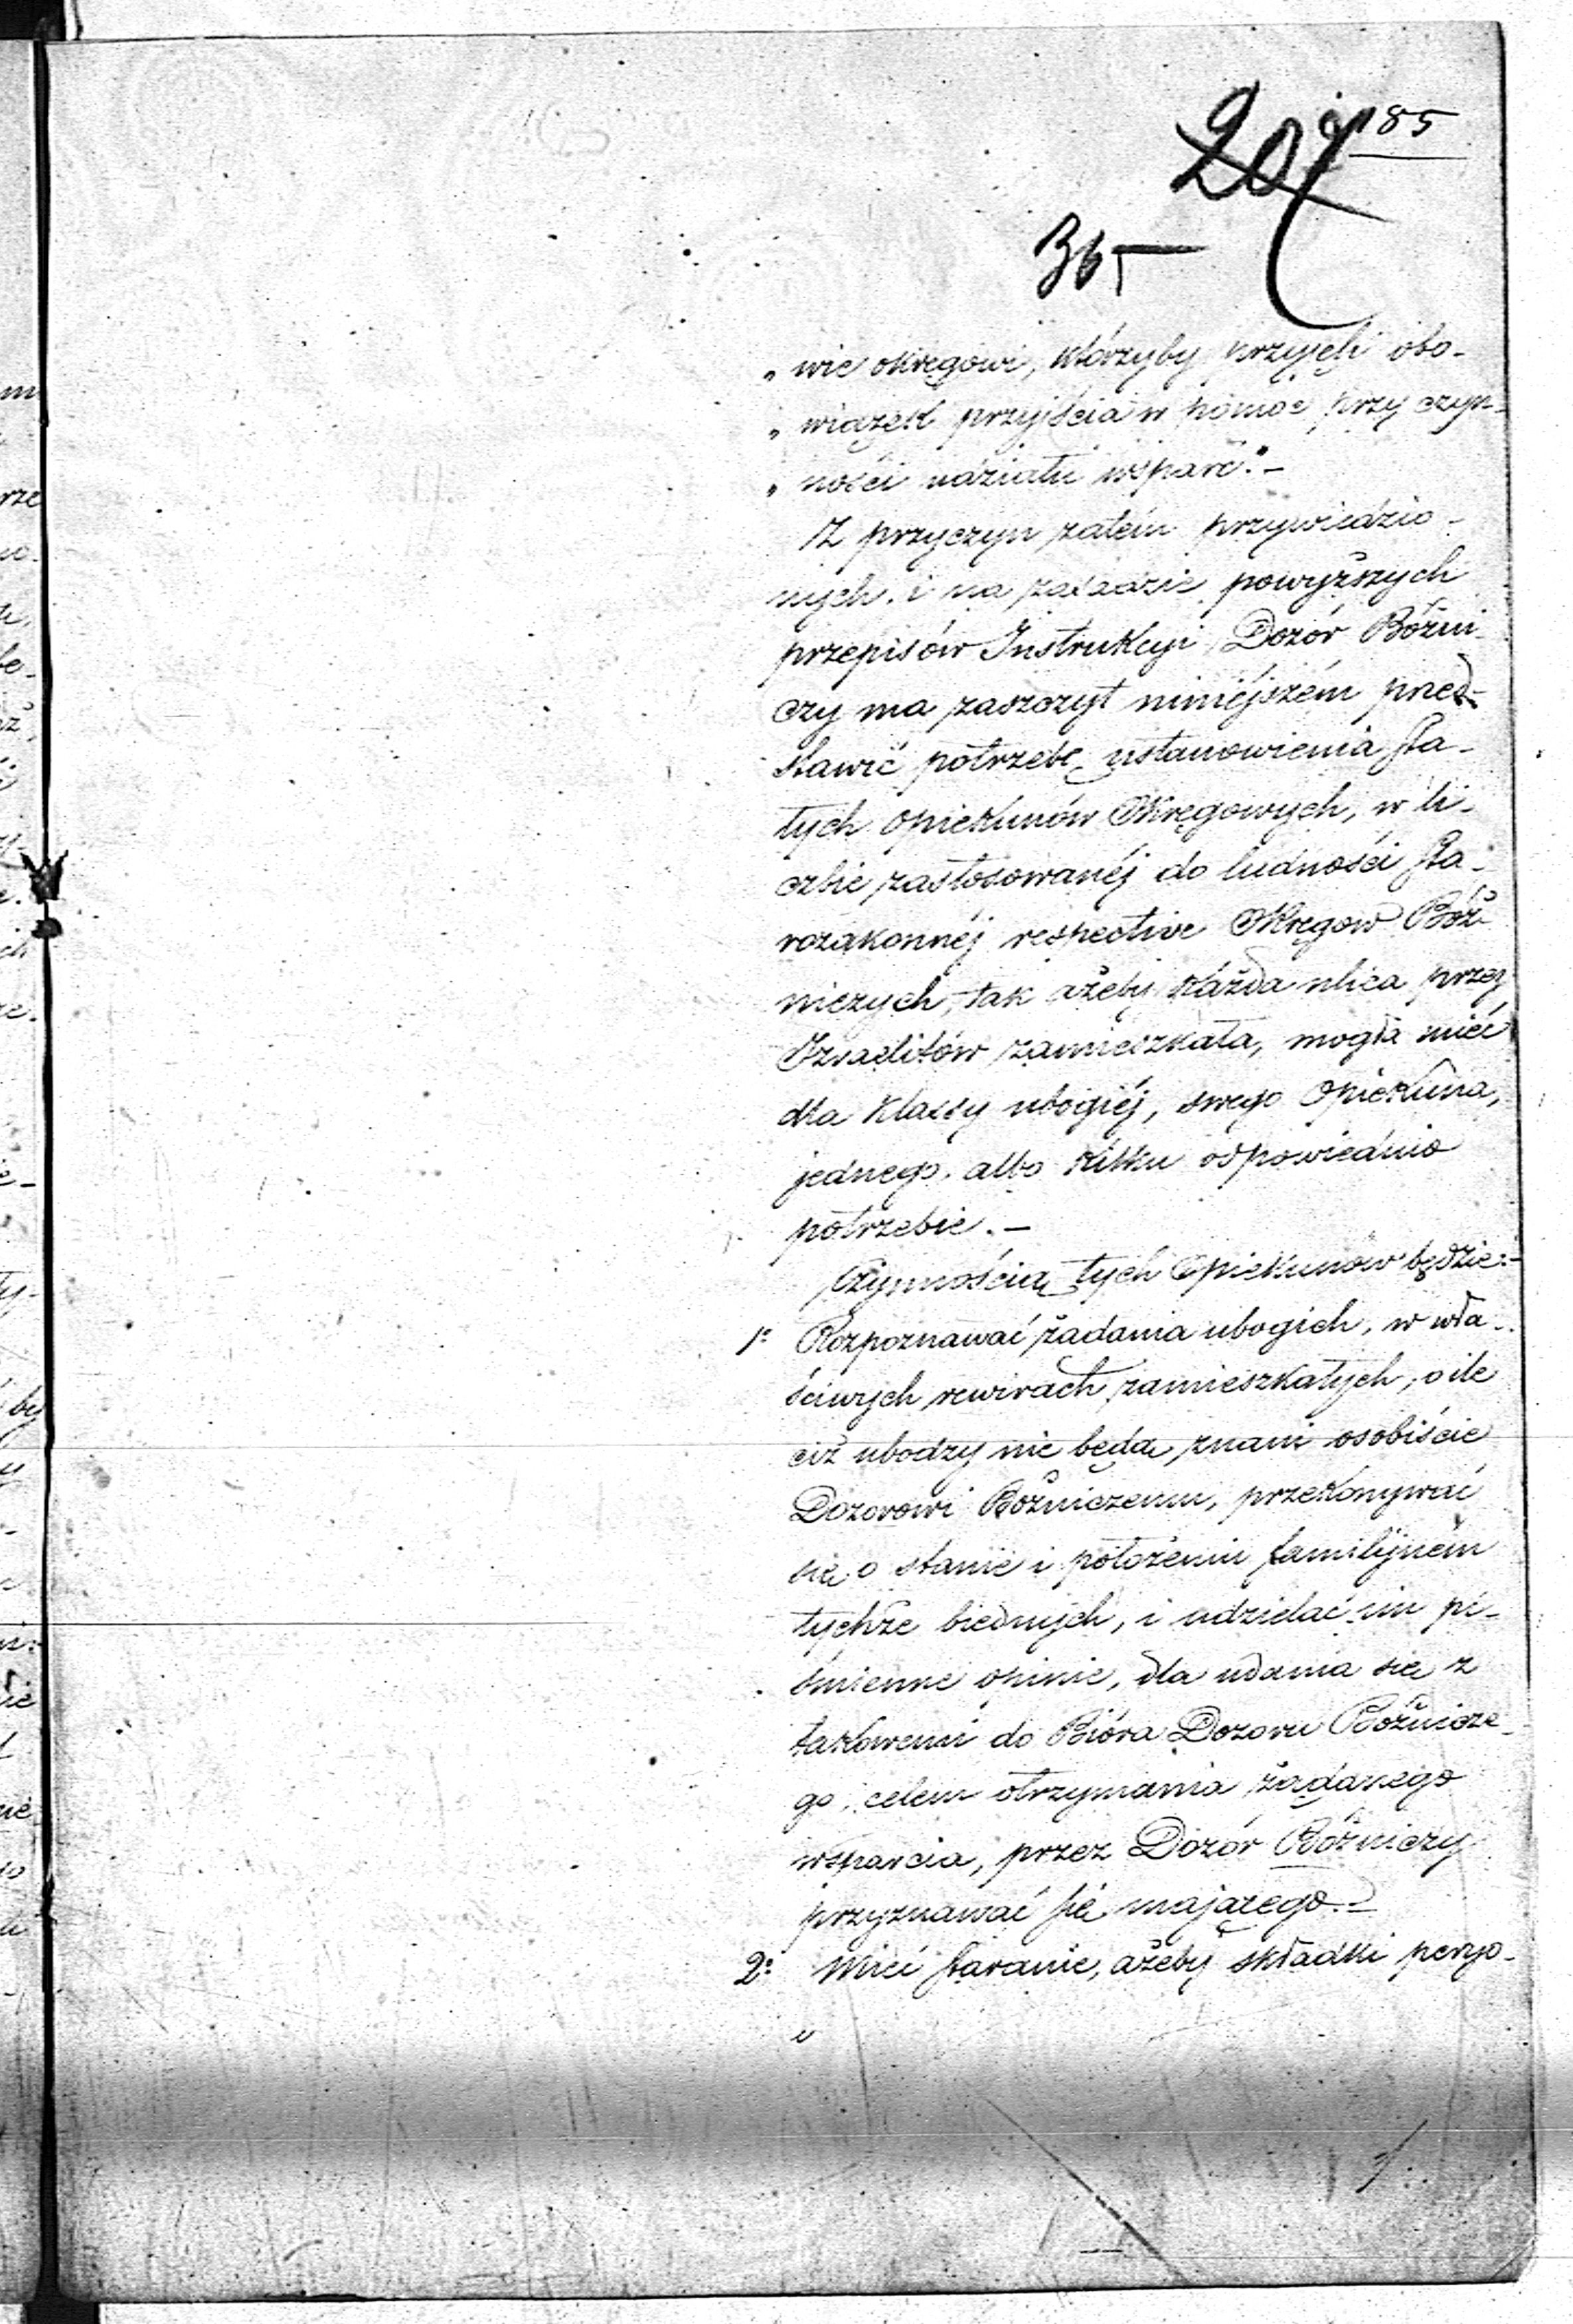 185
209
365
„ wie okręgowi, którzyby przyjęli obo-
„ wiązek przyjścia w pomoc przy czyn-
„ ności udziału wsparć."–
Z przyczyn zatém przywiedzio-
nych i na zasadzie powyższych
przepisów Instrukcyi Dozór Bóżni-
czy ma zaszczyt niniéjszém przed-
stawić potrzebę ustanowienia sta-
łych opiekunów Okręgowych, w li-
czbie zastosowanéj do ludności sta-
rozakonnéj respective Okręgow Bóż-
niczych, tak ażeby każda ulica przez
Izraelitów zamieszkała, mogła mieć
dla klassy ubogiéj, swego Opiekuna,
jednego, albo kilku odpowiednio
potrzebie.–
Czynnością tych Opiekunów będzie:–
1º Rozpoznawać żądania ubogich, w wła-
ściwych rewirach zamieszkałych, o ile
ciż ubodzy nie będą znani osobiście
Dozorowi Bóżniczemu, przekonywać
się o stanie i położeniu familijném
tychże biednych, i udzielać im pi-
śmienne opinie, dla udania się z
takowemi do Bióra Dozoru Bóżnicze-
go, celem otrzymania żądanego
wsparcia, przez Dozór Bóżniczy
przyznawać się mającego.–
2º Mieć staranie, ażeby składki peryo-